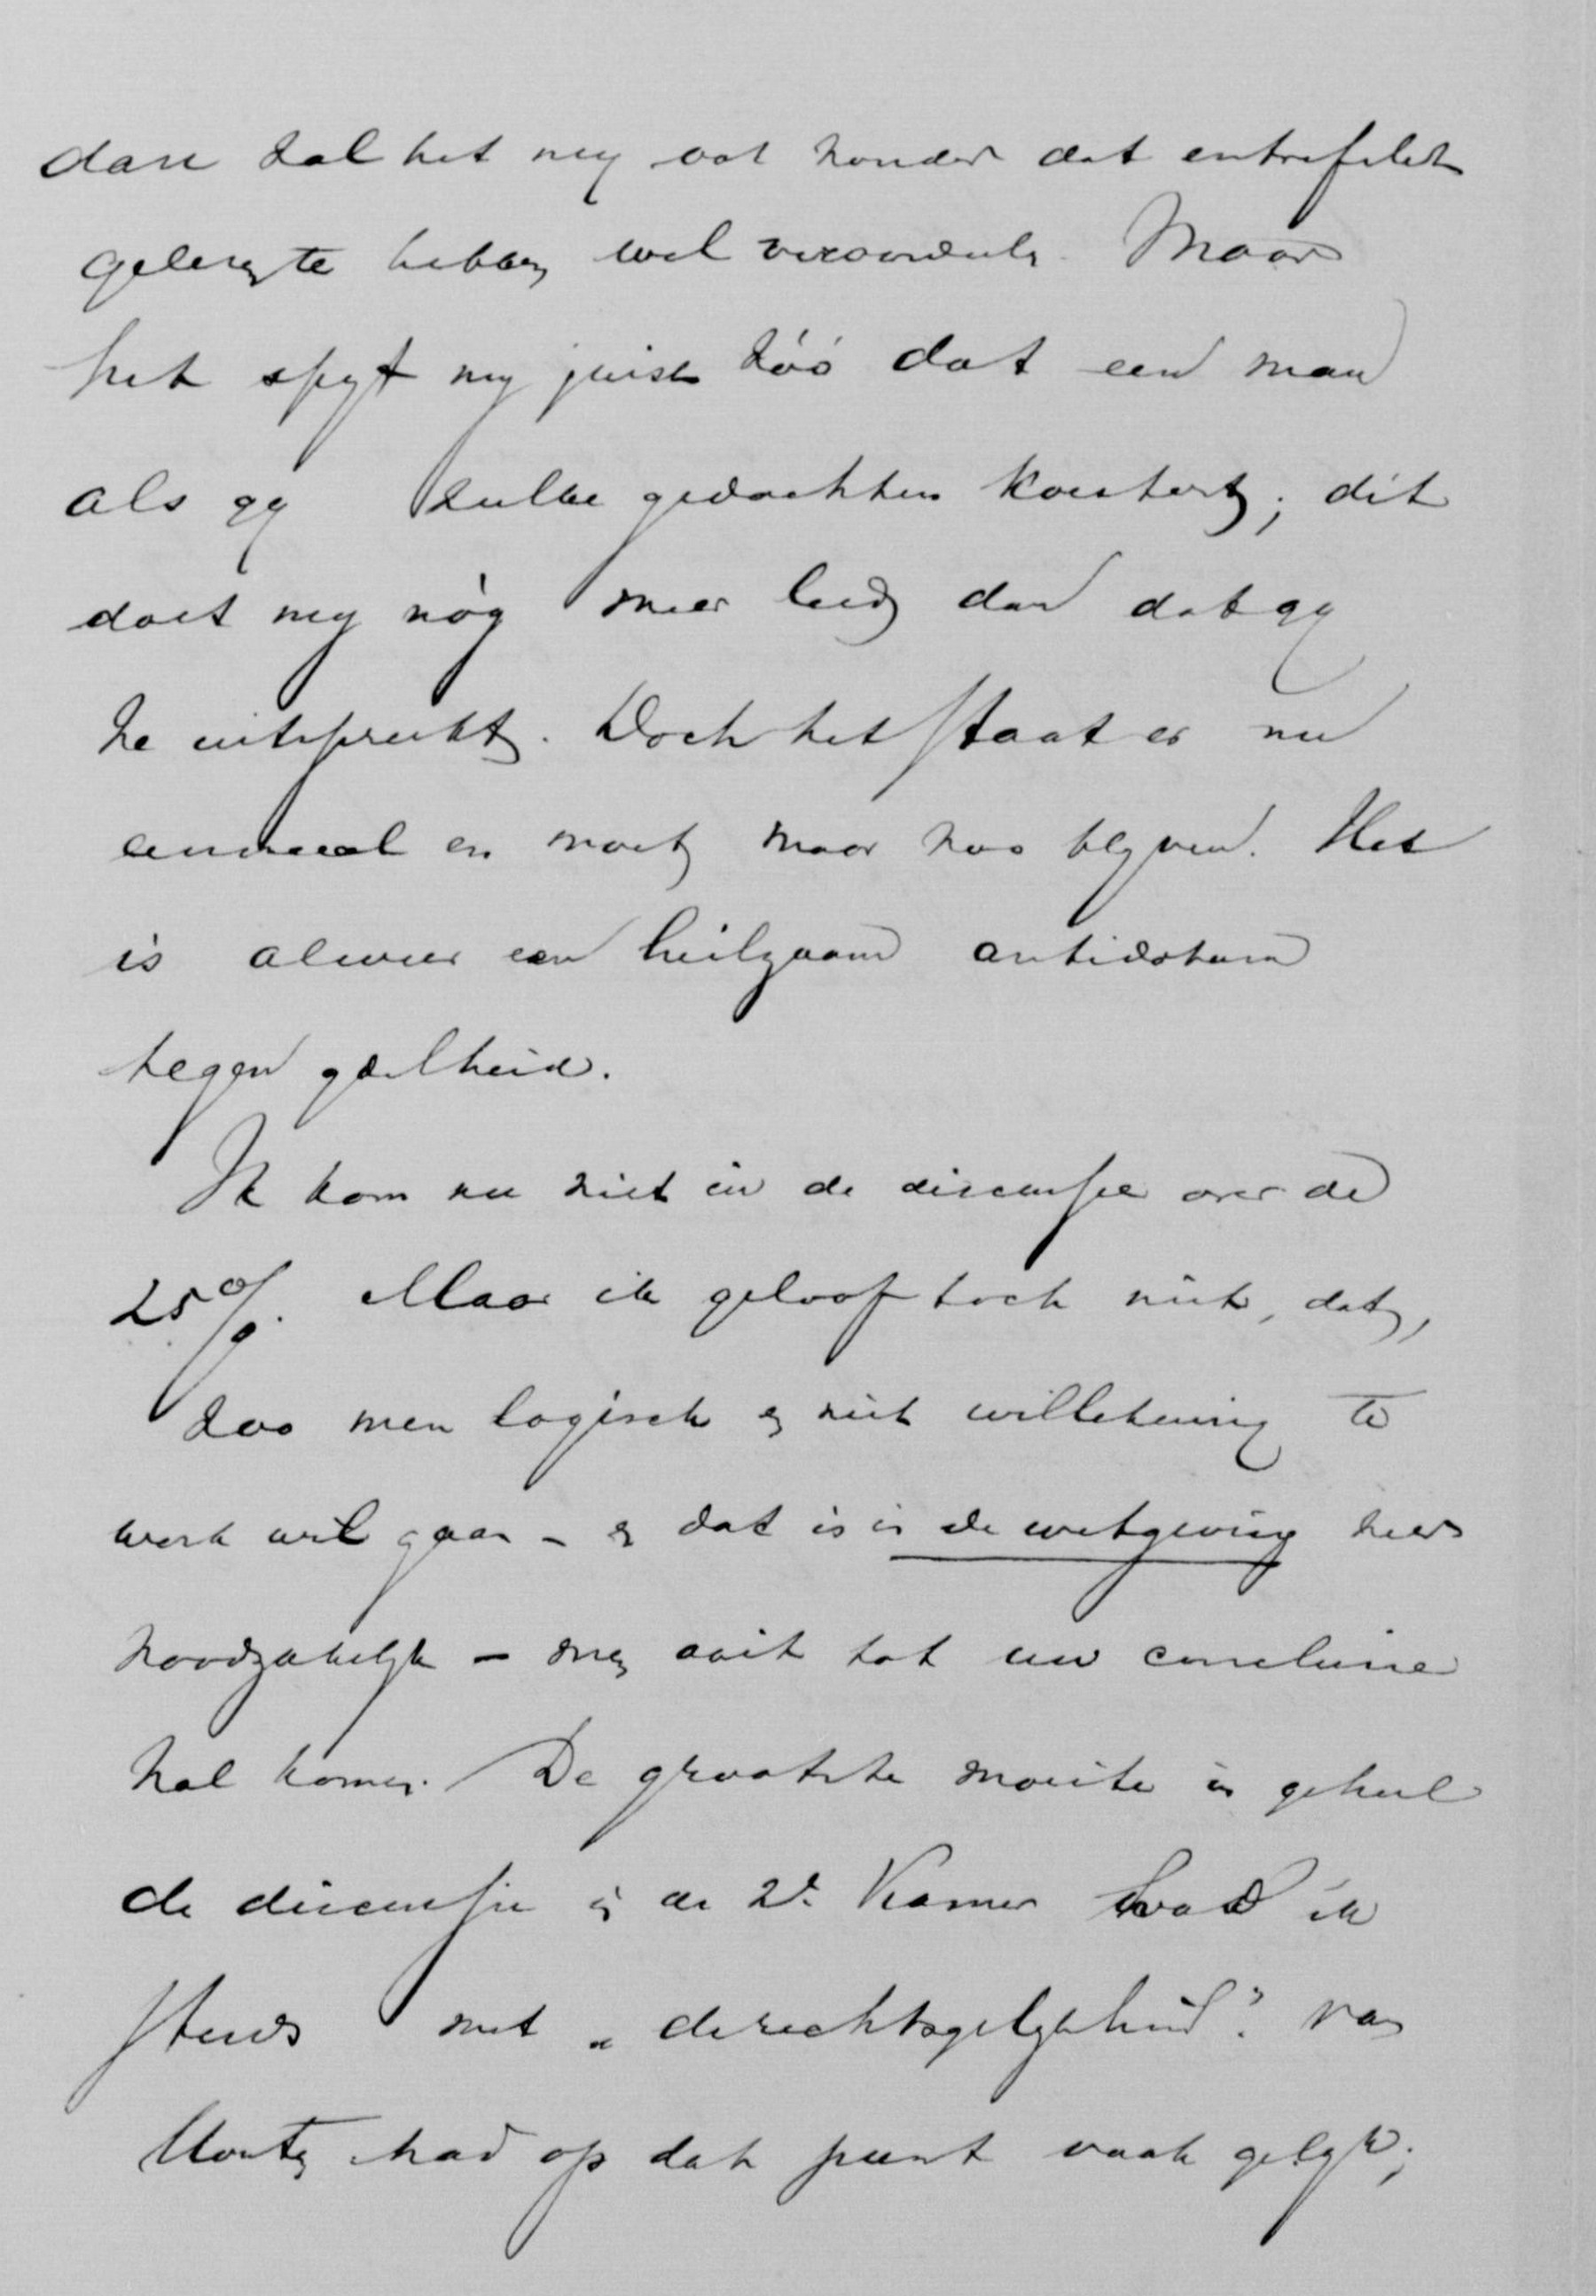 dan zal het mij ook zonder dat entrefilet
gelezen te hebben wel veroordeelen. Maar
het spijt mij juist zóó dat een man
als gij zulke gedachten koestert; dit
doet mij nóg meer leed dan dat gij
ze uitspreekt. Doch het staat er nu
eenmaal en moet maar zoo blijven. Het
is alweer een heilzaam antidotum
tegen ijdelheid.
Ik kom nu niet in de discussie over de
25%. Maar ik geloof toch niet, dat,
zoo men logisch en niet willekeurig te
werk wil gaan – en dat is in de wetgeving zeer
noodzakelijk – men ooit tot uw conclusie
zal komen. De grootste moeite in geheel
de discussie in de 2e Kamer had ik
steeds met „de rechtsgelijkheid". Van
Houten had op dat punt vaak gelijk;